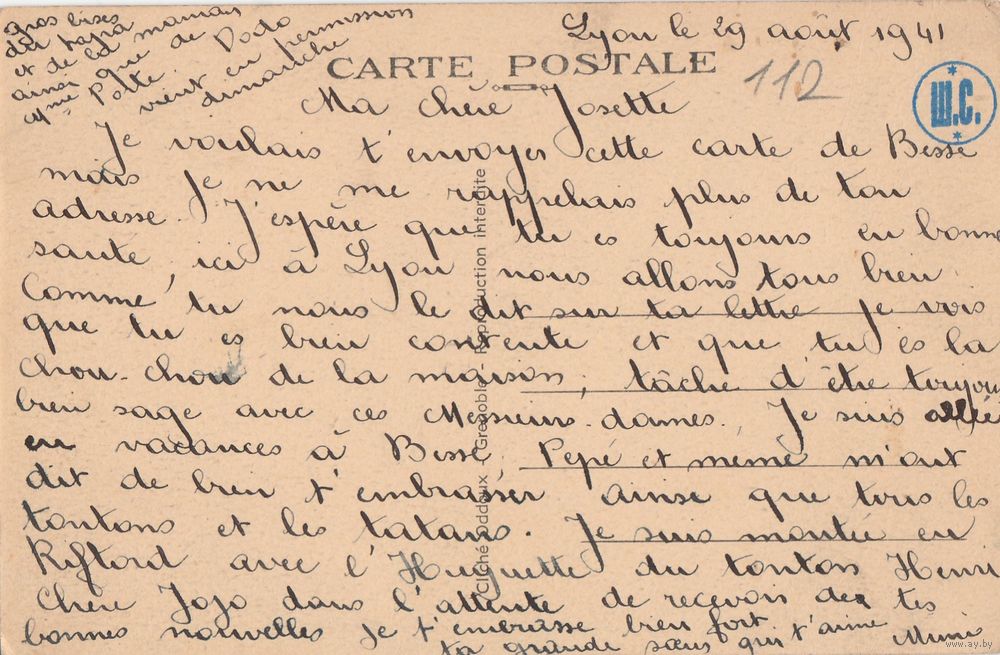 Lyon le 29 août 1941
CARTE POSTALE
112
Ш.С.
Ma chère Josette
Je voulais t'envoyer cette carte de Besse
mais je ne me rappelais plus de ton
adresse. J'espère que tu es toujours en bonne
santé, ici à Lyon nous allons tous bien.
Comme tu nous le dit sur ta lettre je vois
que tu es bien contente et que tu es la
chou-chou de la maison, tâche d'être toujours
bien sage avec ces Messieurs-dames. Je suis allée
en vacances à Besse. Pépé et mémé m'ont
dit de bien t'embrasser ainse que tous les
tontons et les tatans. Je suis montée en
Riftord avec l'Huguette du tonton Henri
Chère Jojo dans l'attente de recevoir de tes
bonnes nouvelles je t'embrasse bien fort.
ta grande sœur qui t'aime Mimi
gros bises
de papa
et de maman
ainsi que de Dodo
vient en permission
dimanche
Cliché Oddoux - Grenoble - Reproduction interdite
www.ay.by